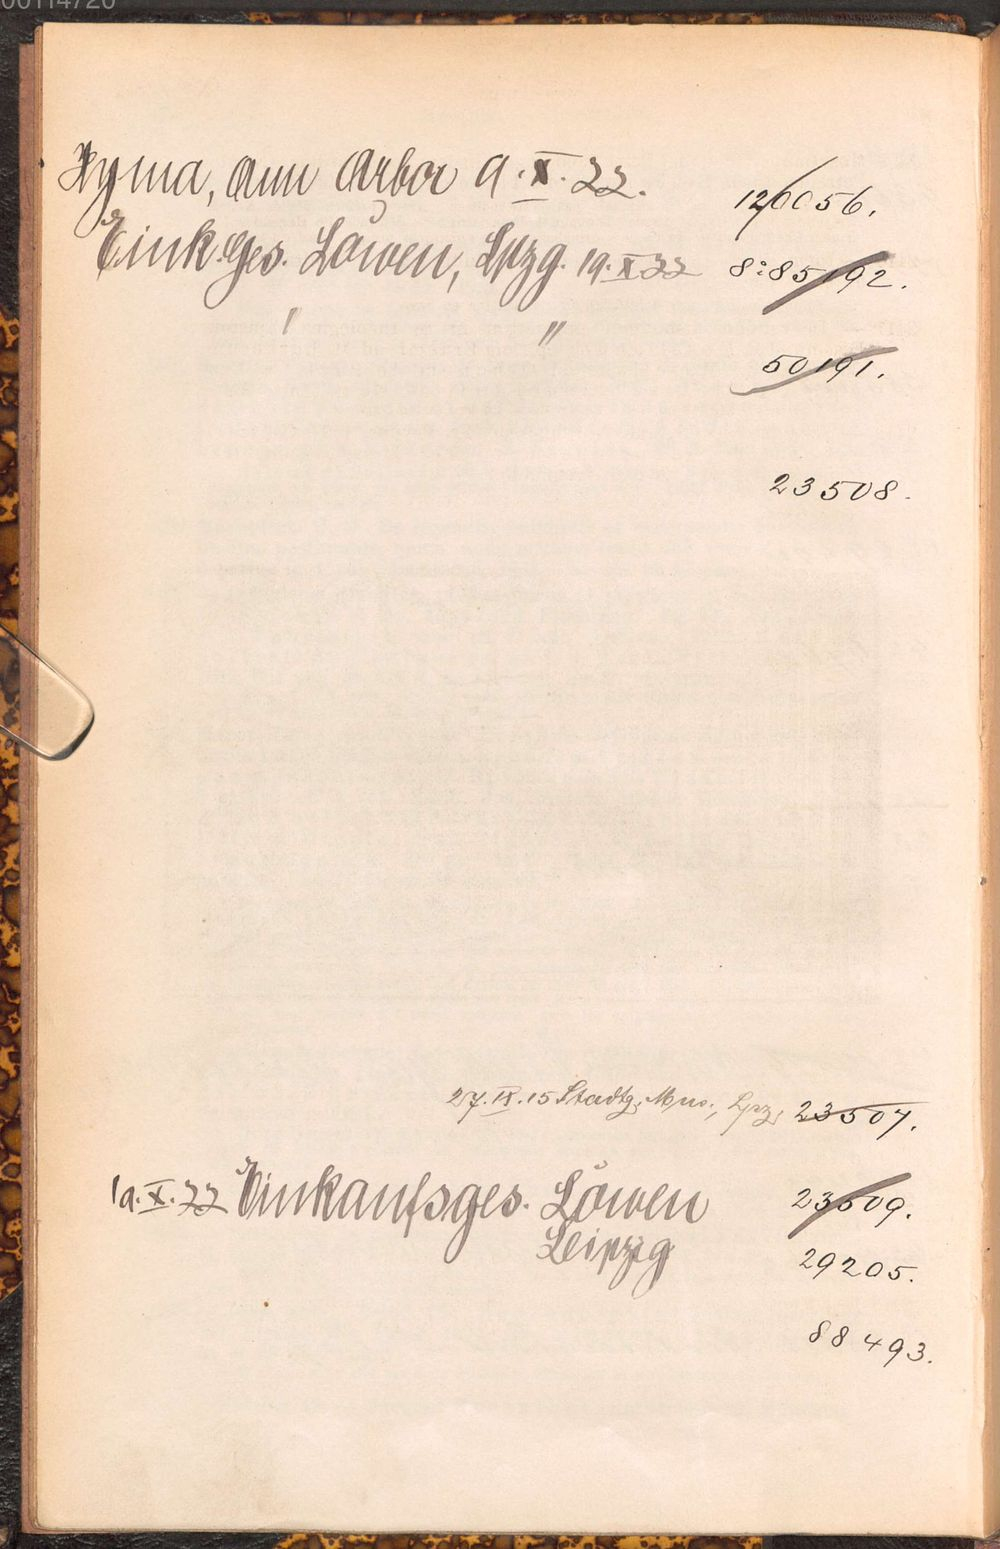 00114720
Hyma, Ann Arbor 9.X.22. 120056.
Eink.Ges. Löwen, Lpzg. 19.X.22 8°:85192.
" "
50191.
23508.
27.IX.15 Stadtg. Mus., Lpz. 23507.
19.X.22 Einkaufsges. Löwen 23509.
Leipzig
29205.
88493.